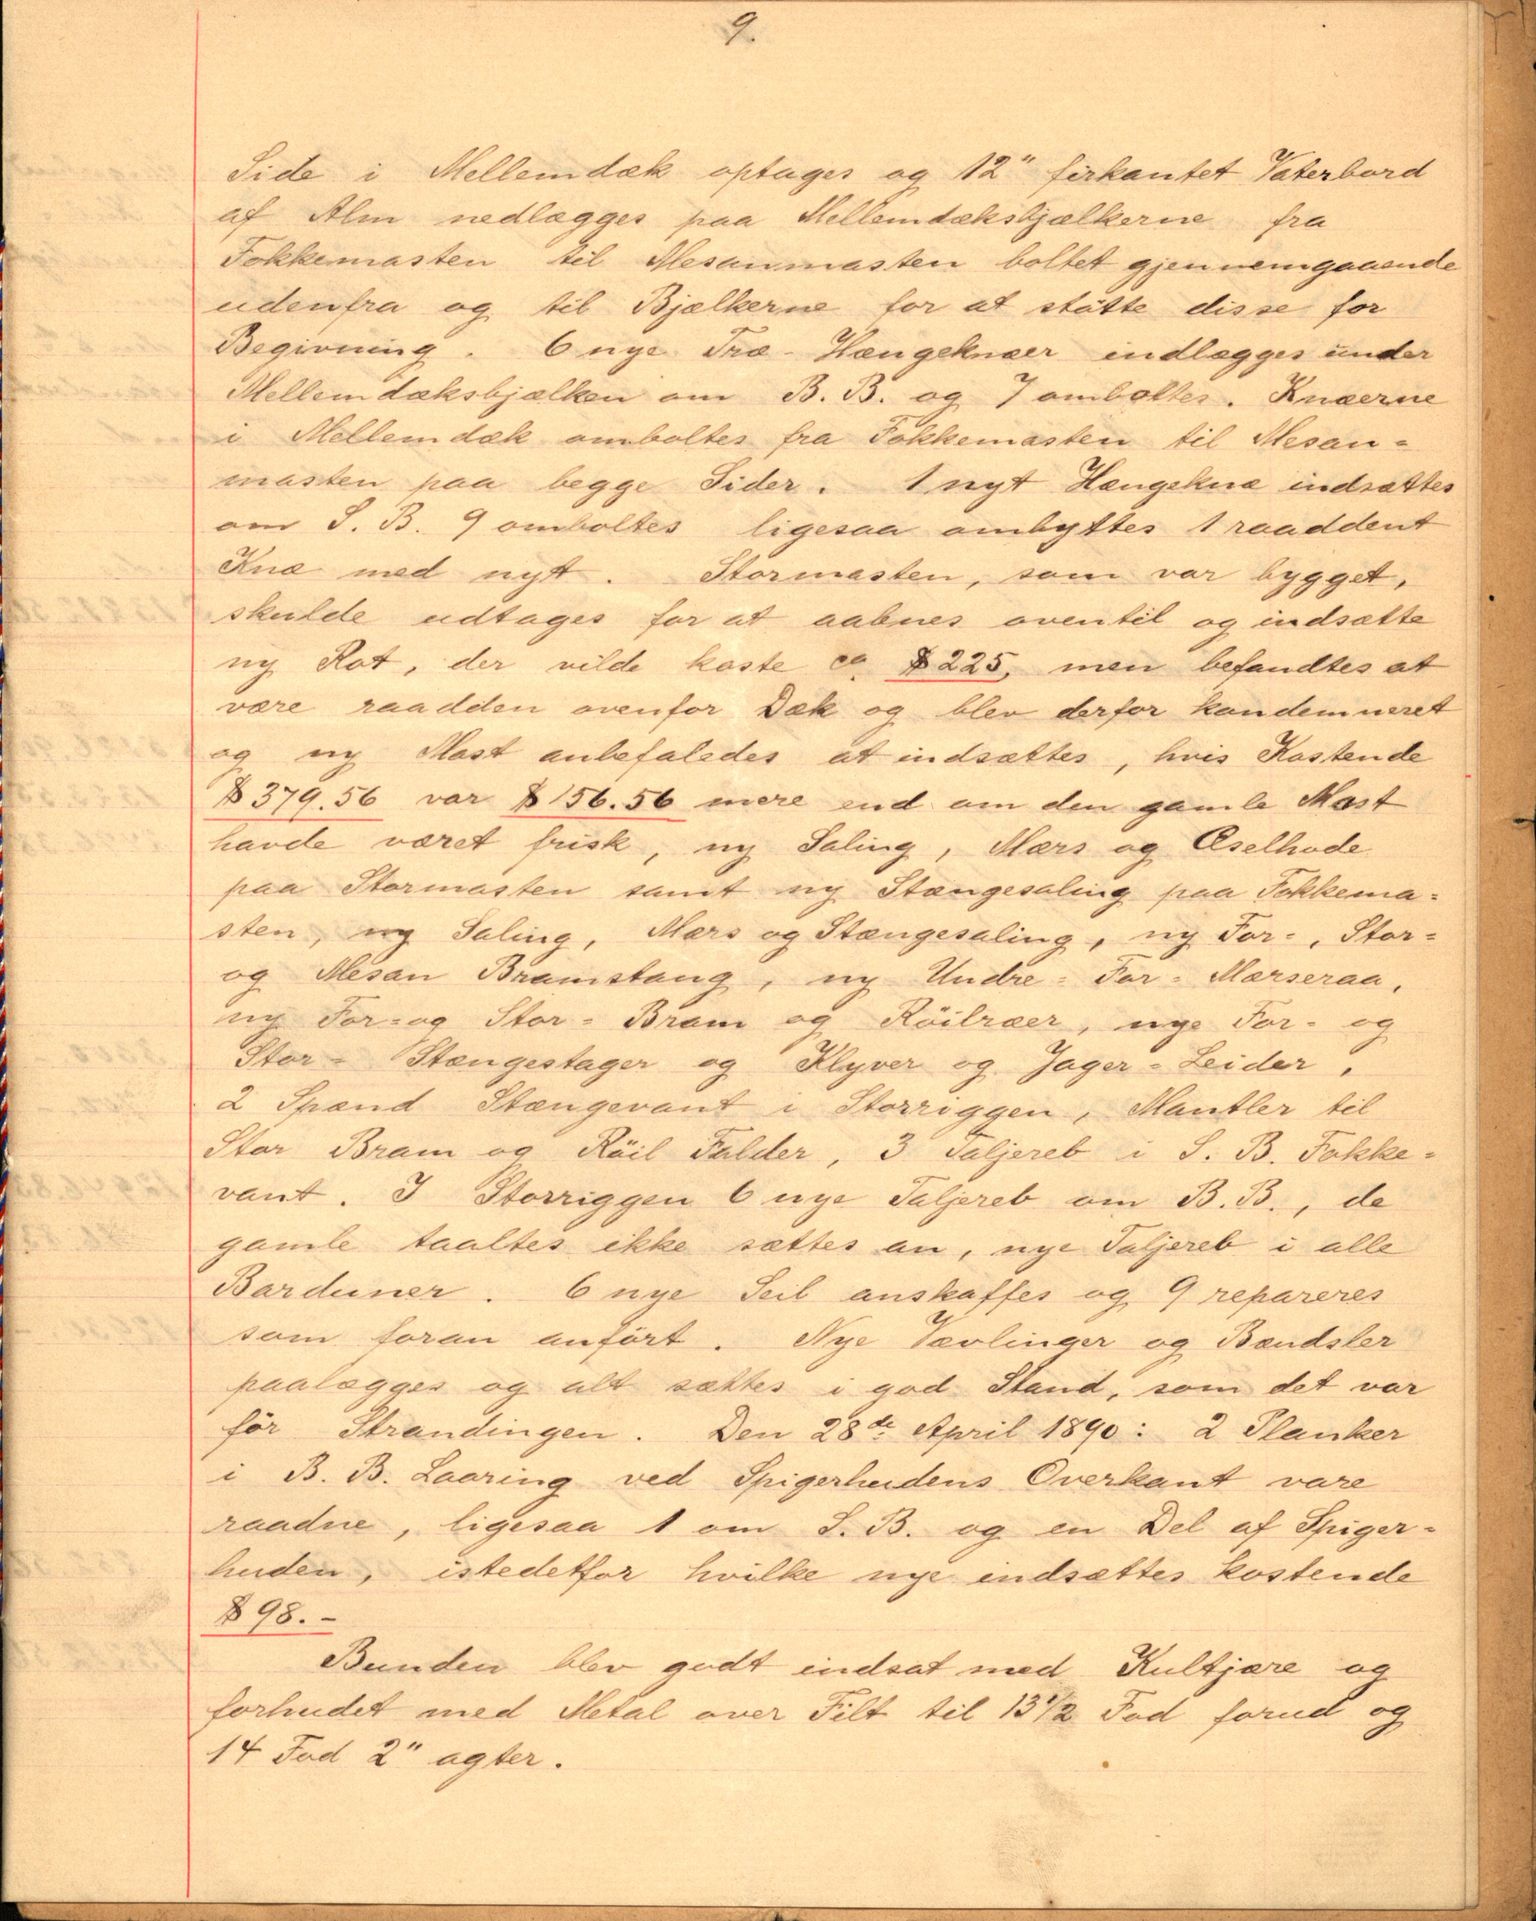 9.
Side i Mellemdæk optages og 12" firkantet Vaterbord
af Alm nedlægges paa Mellemdæksbjælkerne fra
Fokkemasten til Mesanmasten boltet gjennemgaaende
udenfra og til Bjælkerne for at støtte disse for
Begivning. 6 nye Træ-Hængeknæer indlægges under
Mellemdæksbjælken om B. B. og 7 omboltes. Knæerne
i Mellemdæk omboltes fra Fokkemasten til Mesan=
masten paa begge Sider. 1 nyt Hængeknæ indsættes
om S. B. 9 omboltes ligesaa ombyttes 1 raaddent
Knæ med nyt. Stormasten, som var bygget,
skulde udtages for at aabnes oventil og indsætte
ny Rot, der vilde koste ca. $225, men befandtes at
være raadden ovenfor Dæk og blev derfor kondemneret
og ny Mast anbefaledes at indsættes, hvis Kostende
$379.56 var $156.56 mere end om den gamle Mast
havde været frisk, ny Saling, Mærs og Æselhode
paa Stormasten samt ny Stængesaling paa Fokkema=
sten, ny Saling, Mærs og Stængesaling, ny For-, Stor=
og Mesan Bramstang, ny Undre=For=Mærseraa,
ny For=og Stor=Bram og Röilræer, nye For- og
Stor=Stængestager og Klyver og Jager=Leider,
2 Spænd Stængevant i Storriggen, Mantler til
Stor Bram og Röil Falder, 3 Taljereb i S. B. Fokke=
vant. I Storriggen 6 nye Taljereb om B. B., de
gamle taaltes ikke sættes an, nye Taljereb i alle
Barduner. 6 nye Seil anskaffes og 9 repareres
som foran anført. Nye Vævlinger og Bændsler
paalægges og alt sættes i god Stand, som det var
før Strandingen. Den 28de April 1890: 2 Planker
i B. B. Laaring ved Spigerhudens Overkant vare
raadne, ligesaa 1 om S. B. og en Del af Spiger=
huden, istedetfor hvilke nye indsættes kostende
$98.-
Bunden blev godt indsat med Kultjære og
forhudet med Metal over Filt til 13 1/2 Fod forud og
14 Fod 2" agter.